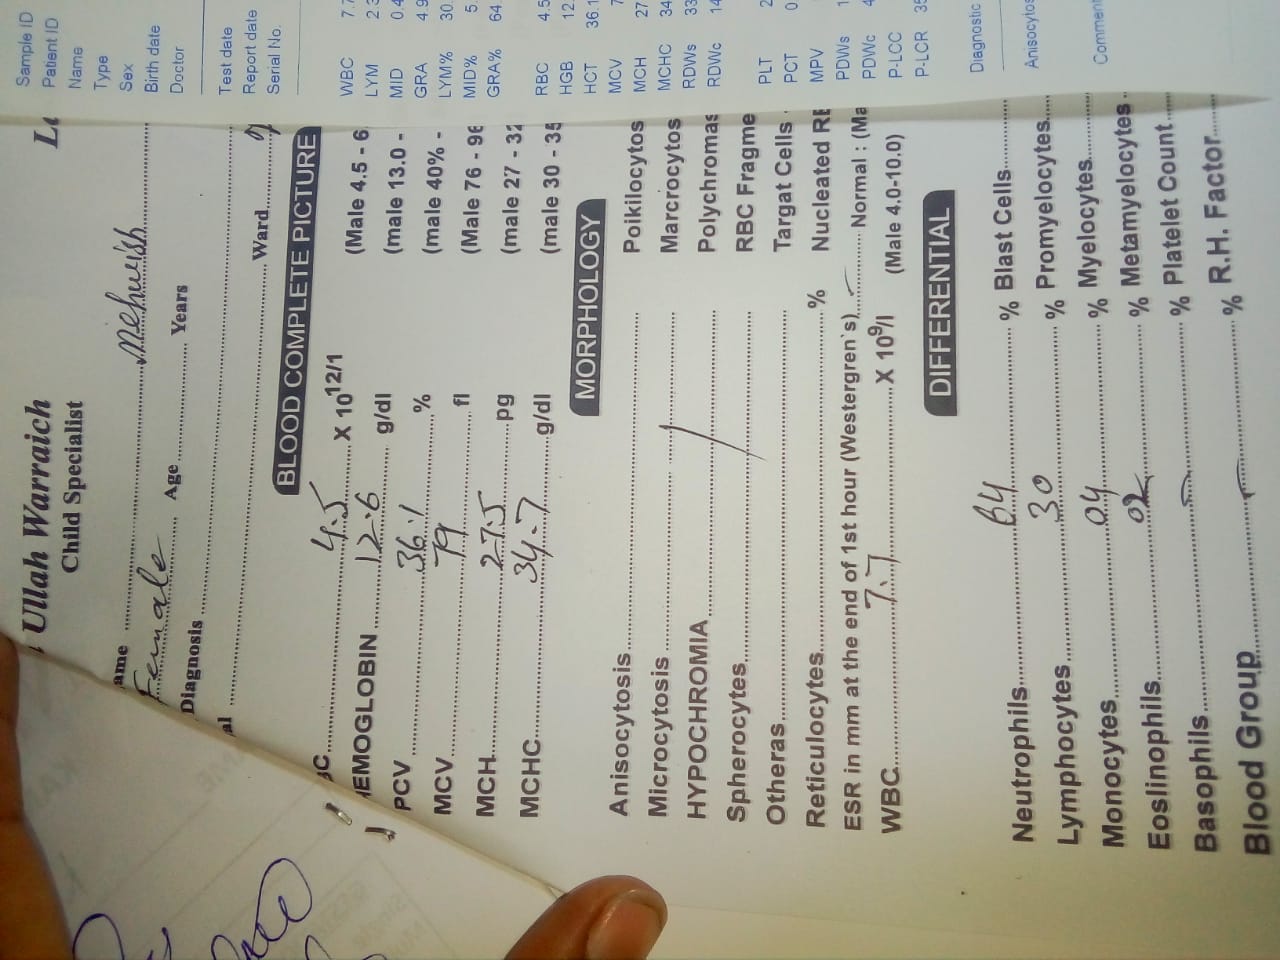 Sample ID
Patient ID
Name
Type
Sex
Birth date
Doctor
Test date
Report date
Serial No.
WBC 7.7
LYM 2.3
MID 0.4
GRA 4.9
LYM% 30.
MID% 5.
GRA% 64
RBC 4.5
HGB 12.
HCT 36.1
MCV 7
MCH 27
MCHC 34
RDWs 33
RDWc 14
PLT 2
PCT 0
MPV
PDWs 1
PDWc 4
P-LCC
P-LCR 35
Diagnostic
Anisocytos
Comment
Ullah Warraich
Child Specialist
ame Mehwish
Female Age Years
Diagnosis
al Ward
BLOOD COMPLETE PICTURE
BC 4.5 X 10 12/1 (Male 4.5 - 6
HEMOGLOBIN 12.6 g/dl (male 13.0 -
PCV 36.1 % (male 40% -
MCV 79 fl (Male 76 - 96
MCH 27.5 pg (male 27 - 32
MCHC 34.7 g/dl (male 30 - 35
MORPHOLOGY
Anisocytosis Poikilocytos
Microcytosis Marcrocytos
HYPOCHROMIA Polychromas
Spherocytes RBC Fragme
Otheras Targat Cells
Reticulocytes % Nucleated RB
ESR in mm at the end of 1st hour (Westergren`s) Normal : (Ma
WBC 7.7 X 10 9/l (Male 4.0-10.0)
DIFFERENTIAL
Neutrophils 64 % Blast Cells
Lymphocytes 30 % Promyelocytes
Monocytes 04 % Myelocytes
Eoslinophils 02 % Metamyelocytes
Basophils % Platelet Count
Blood Group % R.H. Factor